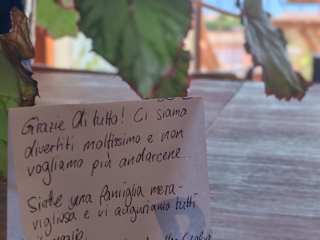 Grazie di tutto! Ci siamo
divertiti moltissimo e non
vogliamo più andarcene..
Siete una famiglia mera-
vigliosa e vi auguriamo tutti